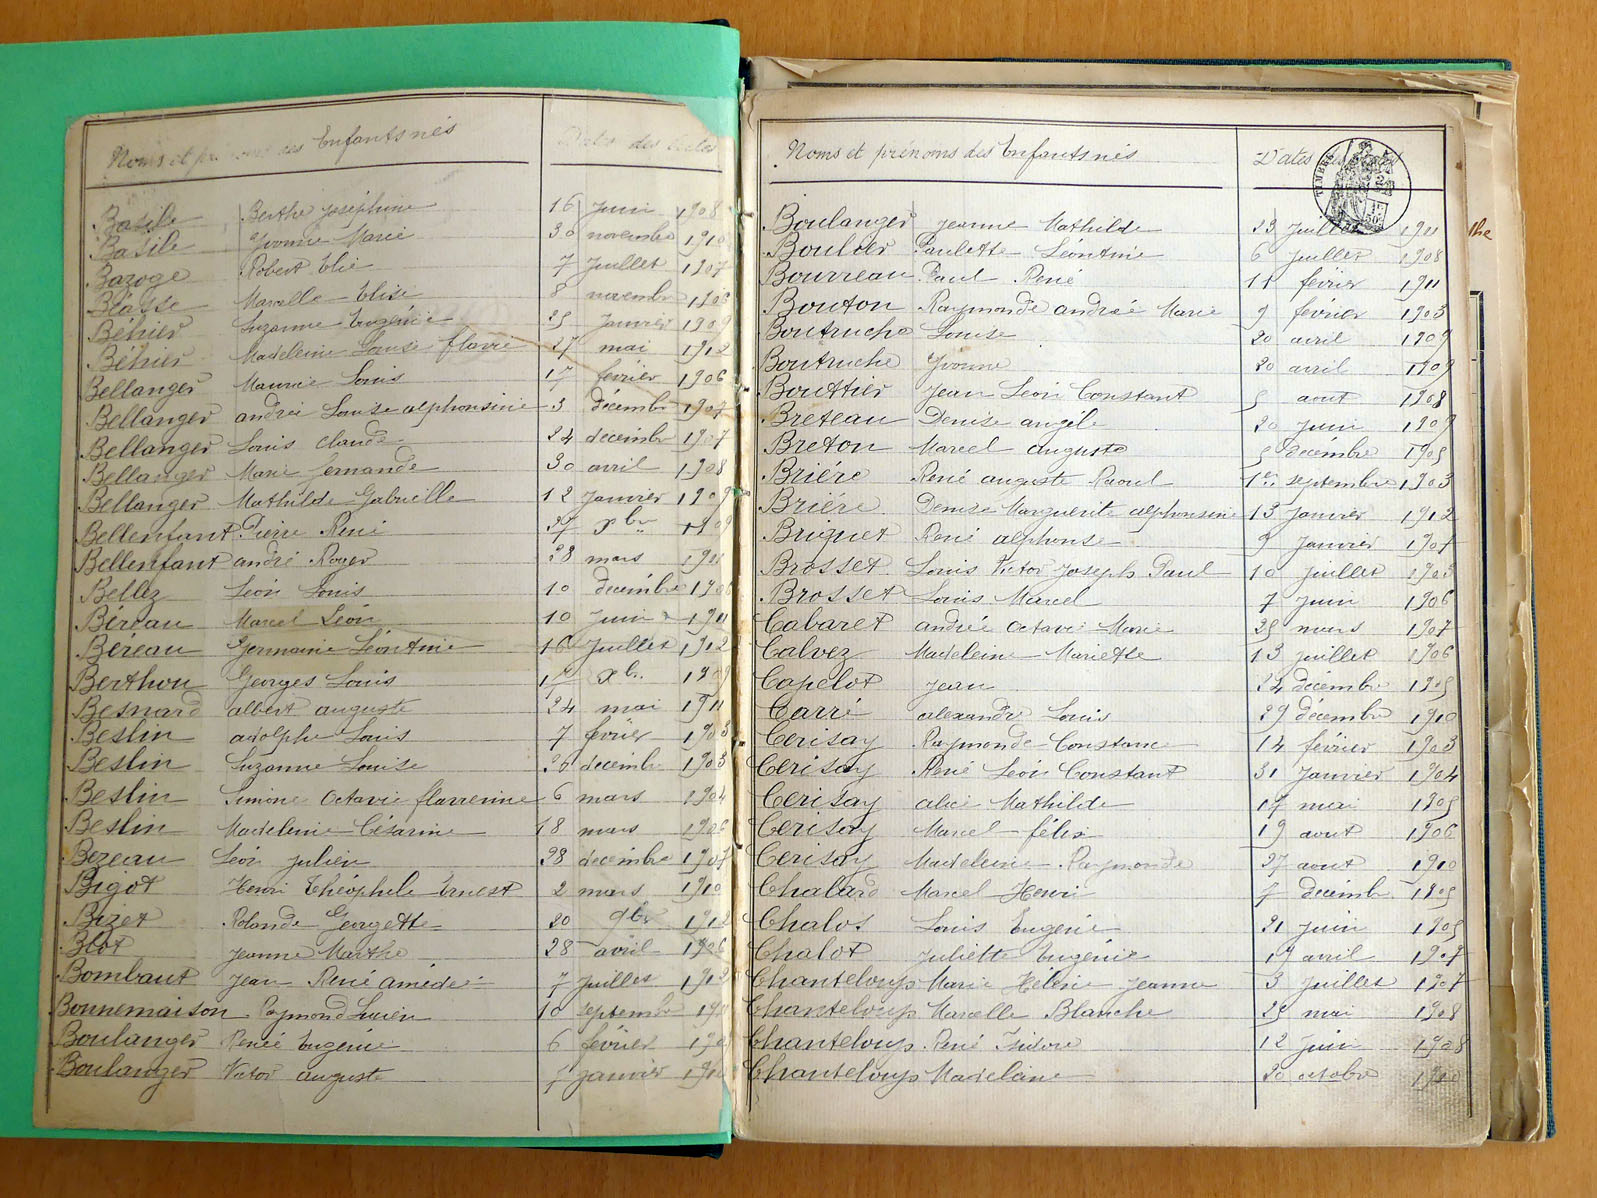 Noms et prénoms des Enfants nés Dates des Actes
Basile Berthe Joséphine 16 Juin 1908
Basile Yvonne Marie 30 novembre 1910
Bazoge Robert Elie 7 Juillet 1907
Blasse Marcelle Elise 8 novembre 1906
Béhier Suzanne Eugénie 25 Janvier 1909
Béhier Madeleine Louise flavie 27 mai 1912
Bellanger Maurice Louis 17 février 1906
Bellanger andrée Louise alphonsine 3 décembre 1907
Bellanger Louis Claude 24 décembre 1907
Bellanger Marie fernande 30 avril 1908
Bellanger Mathilde Gabrielle 12 Janvier 1909
Bellenfant Pierre René 27 Xbre 1909
Bellenfant andré Roger 28 mars 1911
Bellez Léon Louis 10 décembre 1906
Béreau Marcel Léon 10 Juin 1911
Béreau Germaine Léontine 16 Juillet 1912
Berthon Georges Louis Xbre 1909
Besnard albert auguste 24 mai 1911
Beslin adolphe Louis 7 février 1903
Beslin Suzanne Louise 26 décembre 1903
Beslin Simone Octavie flavrenine 6 mars 1904
Beslin Madeleine Césarine 18 mars 1906
Bezeau Léon Julien 28 décembre 1907
Bigot Henri Théophile Ernest 2 mars 1910
Bizet Rolande Georgette 20 9bre 1912
Blot Jeanne Marthe 28 avril 1906
Bombaut Jean René amédée 7 Juillet 1912
Bonnemaison Raymond Lucien 10 septembre
Boulanger Renée Eugénie 6 février
Boulanger Victor auguste 7 janvier 1910
Noms et prénoms des Enfants nés Dates des
TIMBRE
Boulanger Jeanne Mathilde 23 Juillet 1911
Boulier Paulette Léontine 6 Juillet 1908
Bourreau Paul René 11 février 1911
Bouton Raymonde andrée Marie 9 février 1903
Boutruche Louise 20 avril 1909
Boutruche Yvonne 20 avril 1909
Bouttier Jean Léon Constant 5 aout 1908
Breteau Denise angèle 20 Juin 1909
Breton Marcel auguste 5 décembre 1905
Brière René auguste Raoul 1er septembre 1903
Brière Denise Marguerite alphonsine 13 Janvier 1912
Briquet René alphonse 9 Janvier 1907
Brosset Louis Victor Joseph Paul 10 Juillet 1903
Brosset Louis Marcel 7 Juin 1906
Cabaret andrée Octavie Marie 25 mars 1907
Calvez Madeleine Mariette 13 Juillet 1906
Capelot Jean 24 décembre 1905
Carré alexandre Louis 29 décembre 1910
Cerisay Raymonde Constance 14 février 1903
Cerisay René Léon Constant 31 Janvier 1904
Cerisay alice Mathilde 17 mai 1905
Cerisay Marcel félix 19 aout 1906
Cerisay Madeleine Raymonde 27 aout 1910
Chalard Marcel Henri 7 décembre 1905
Chalot Louis Eugène 21 Juin 1905
Chalot Juliette Eugénie 17 avril 1907
Chanteloup Marie Hélène Jeanne 3 Juillet 1907
Chanteloup Marcelle Blanche 25 mai 1908
Chanteloup René Isidore 12 Juin 1908
Chanteloup Madeleine 20 octobre 1910